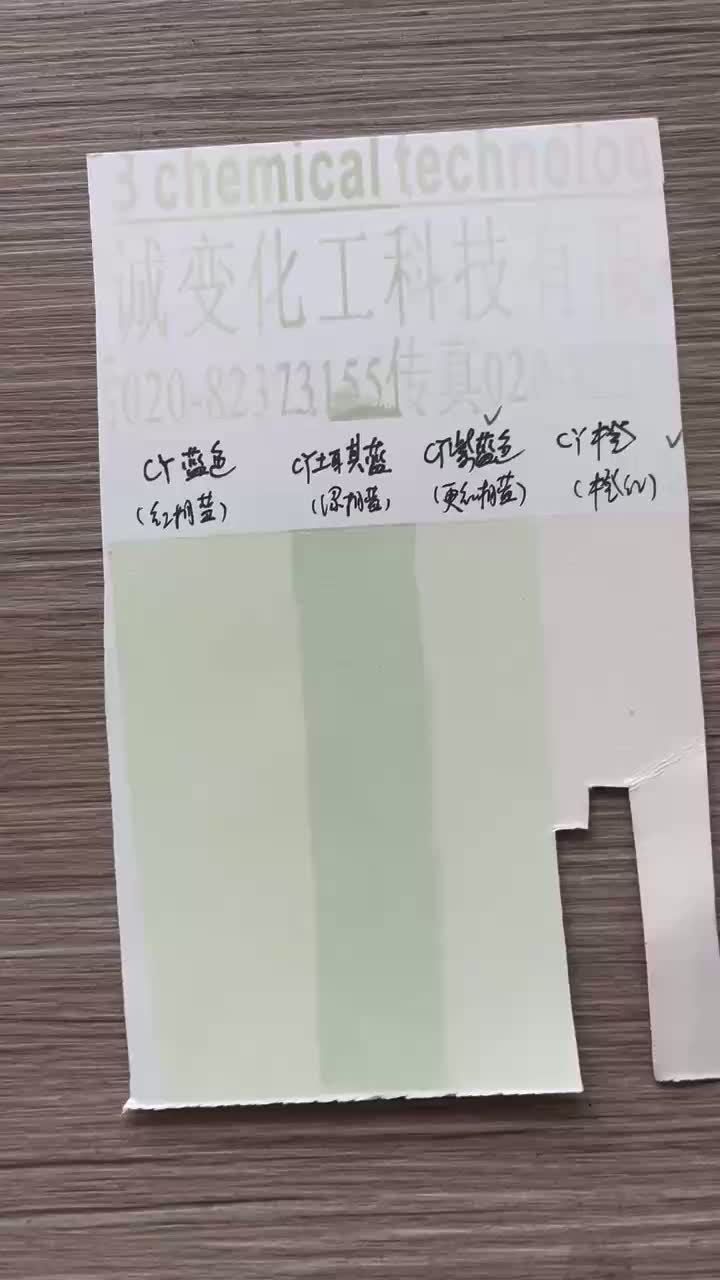 3 chemical technolog
诚变化工科技有限
020-82373155传真020-
CY蓝色 CY土耳其蓝 CY紫蓝色 CY橙
(红相蓝) (绿相蓝) (更红相蓝) (橙红)